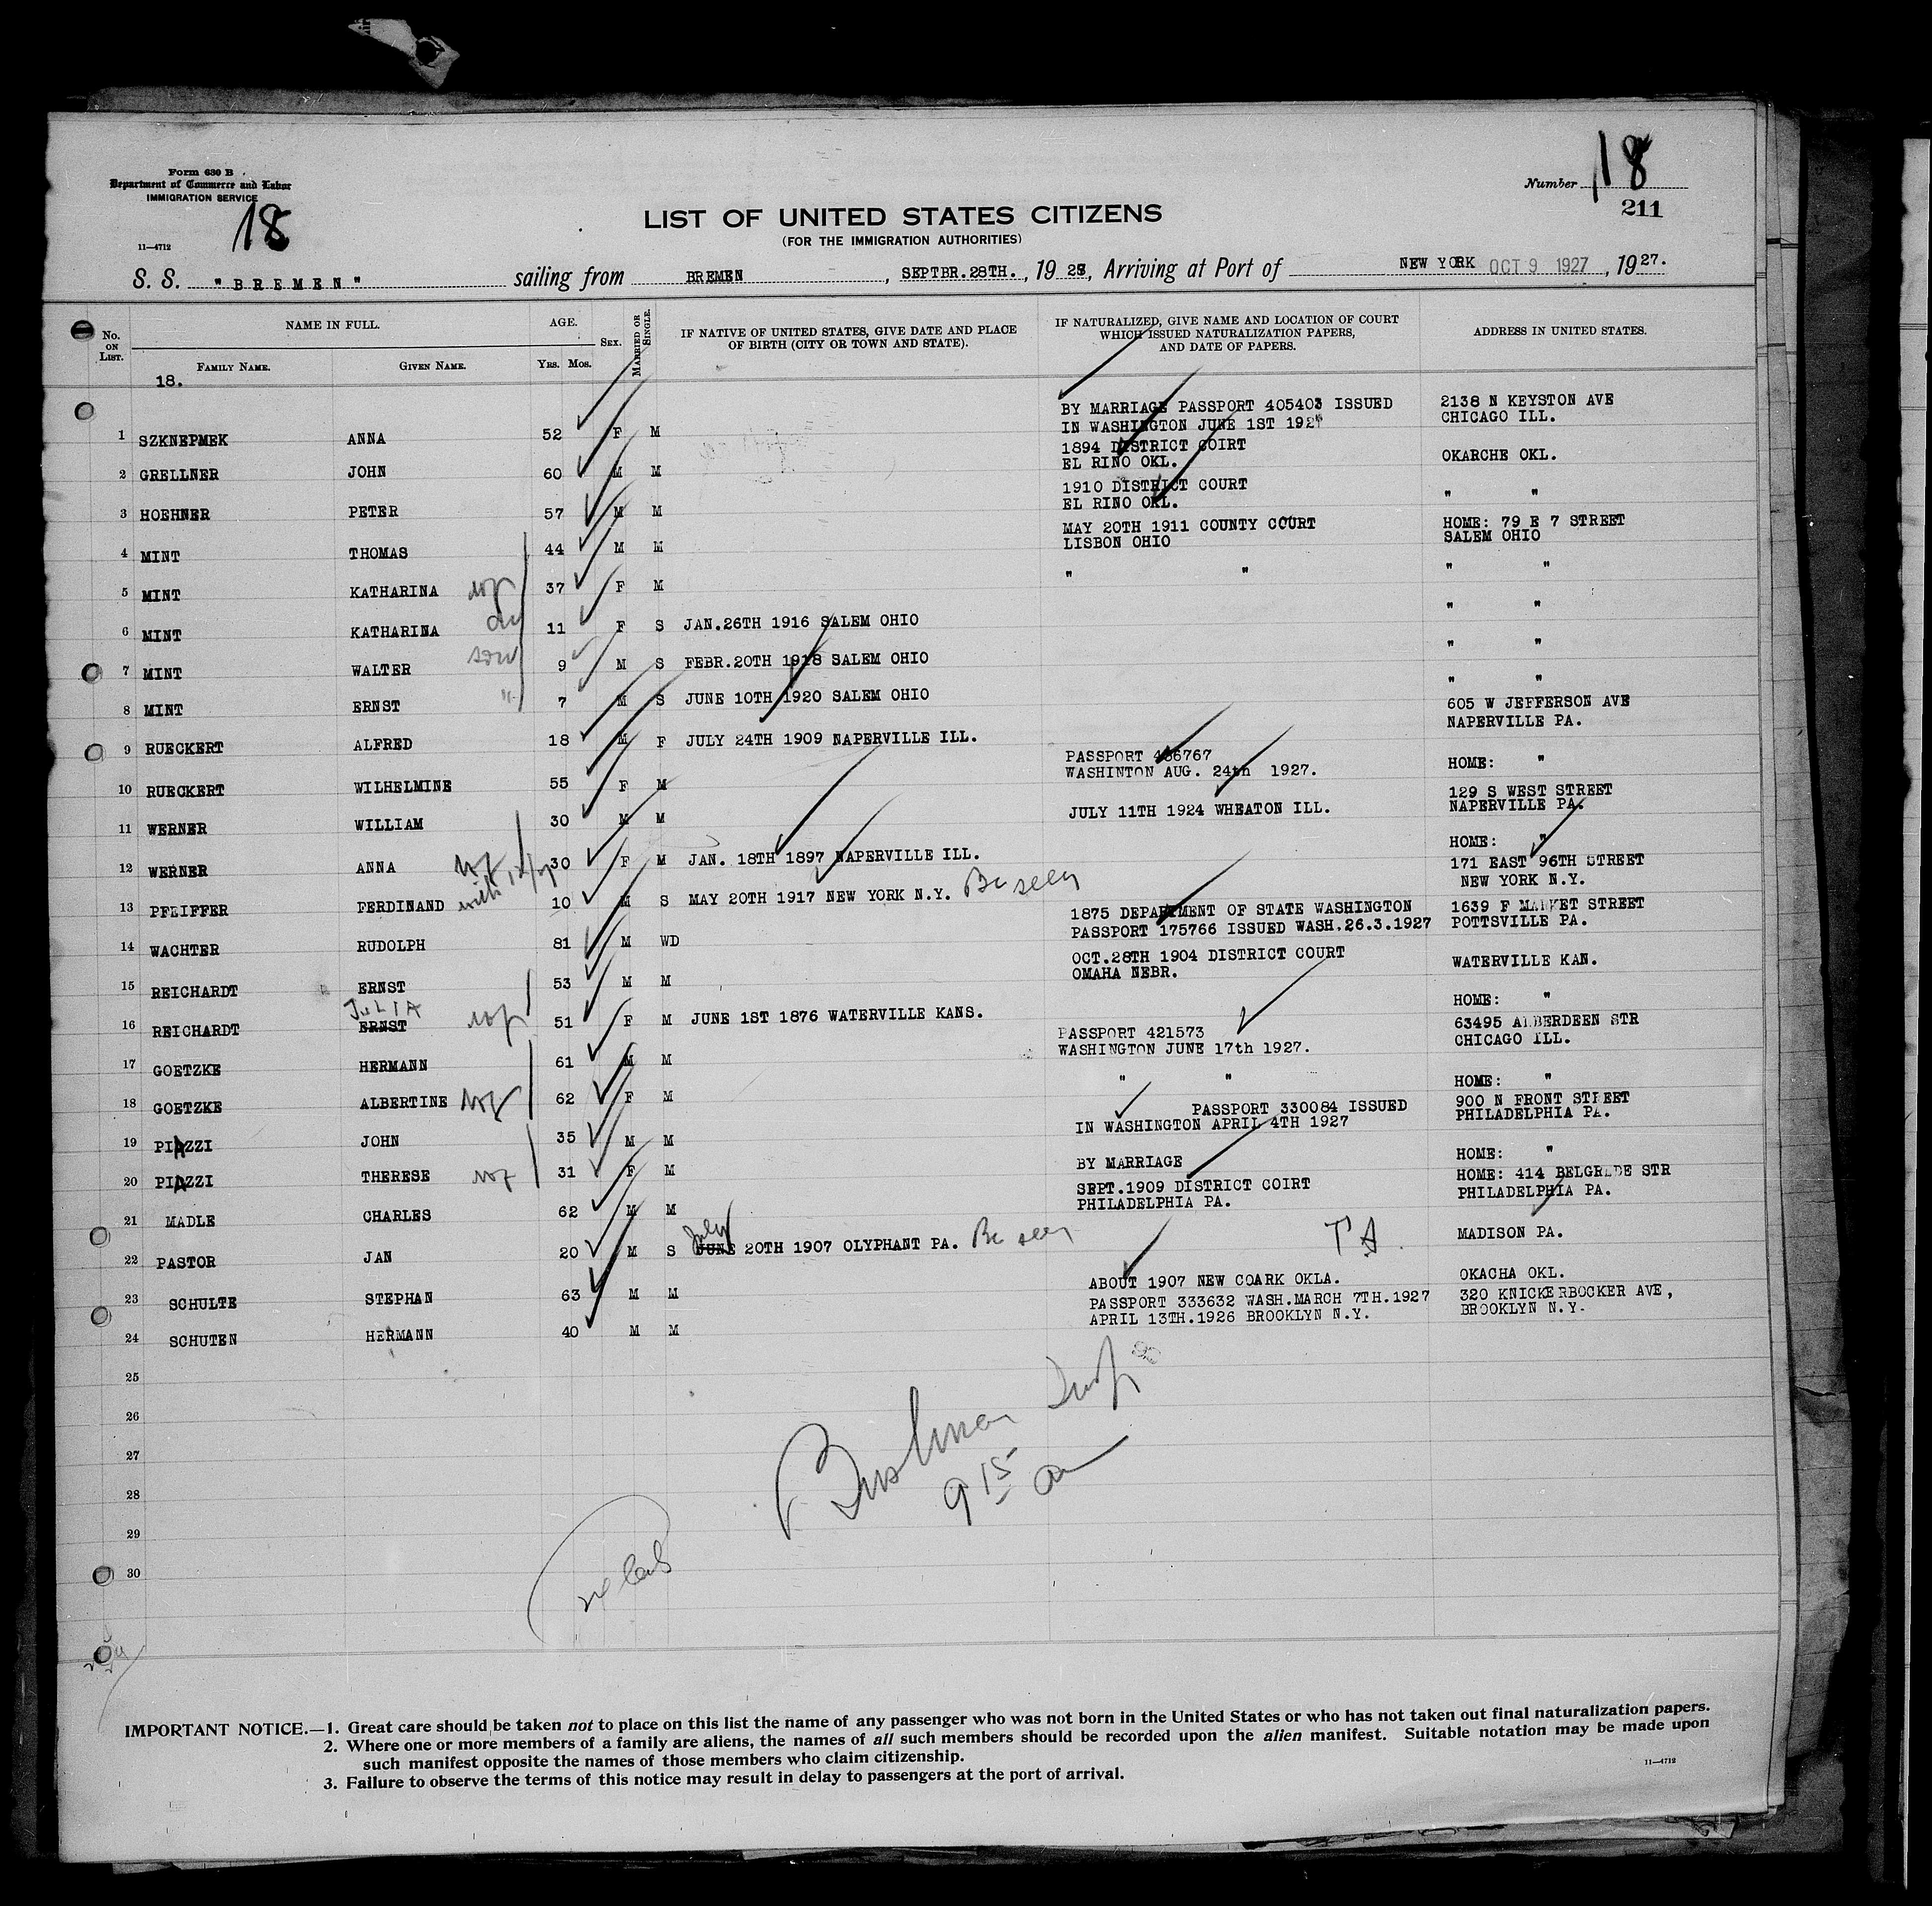 Form 630 B
Department of Commerce and Labor
IMMIGRATION SERVICE
18
11—4712
Number 18
211
LIST OF UNITED STATES CITIZENS
(FOR THE IMMIGRATION AUTHORITIES)
S. S. "BREMEN" sailing from BREMEN, SEPTBR.28TH., 19 , Arriving at Port of NEW YORK OCT 9 1927, 1927.
No. ON LIST.
NAME IN FULL.
FAMILY NAME. GIVEN NAME.
AGE.
YRS. MOS.
SEX.
MARRIED OR SINGLE.
IF NATIVE OF UNITED STATES, GIVE DATE AND PLACE OF BIRTH (CITY OR TOWN AND STATE).
IF NATURALIZED, GIVE NAME AND LOCATION OF COURT WHICH ISSUED NATURALIZATION PAPERS, AND DATE OF PAPERS.
ADDRESS IN UNITED STATES.
18.
1 SZKNEPMEK ANNA 52 F M BY MARRIAGE PASSPORT 405403 ISSUED 2138 N KEYSTON AVE
IN WASHINGTON JUNE 1ST CHICAGO ILL.
2 GRELLNER JOHN 60 M M 1894 DISTRICT COIRT OKARCHE OKL.
EL RINO OKL.
3 HOEHNER PETER 57 M M 1910 DISTRICT COURT " "
EL RINO OKL.
4 MINT THOMAS 44 M M MAY 20TH 1911 COUNTY COURT HOME: 79 E 7 STREET
LISBON OHIO SALEM OHIO
5 MINT KATHARINA 37 F M " " " "
6 MINT KATHARINA 11 F S JAN.26TH 1916 SALEM OHIO " "
7 MINT WALTER son 9 M S FEBR.20TH 1918 SALEM OHIO " "
8 MINT ERNST " 7 M S JUNE 10TH 1920 SALEM OHIO " "
9 RUECKERT ALFRED 18 M F JULY 24TH 1909 NAPERVILLE ILL. 605 W JEFFERSON AVE
NAPERVILLE PA.
10 RUECKERT WILHELMINE 55 F M PASSPORT 436767 HOME: "
WASHINTON AUG. 24th 1927.
11 WERNER WILLIAM 30 M M JULY 11TH 1924 WHEATON ILL. 129 S WEST STREET
NAPERVILLE PA.
12 WERNER ANNA 30 F M JAN. 18TH 1897 NAPERVILLE ILL. HOME: "
13 PFEIFFER FERDINAND with 10 M S MAY 20TH 1917 NEW YORK N.Y. Be seen 171 EAST 96TH STREET
NEW YORK N.Y.
14 WACHTER RUDOLPH 81 M WD 1875 DEPARTMENT OF STATE WASHINGTON 1639 F MARKET STREET
PASSPORT 175766 ISSUED WASH.26.3.1927 POTTSVILLE PA.
15 REICHARDT ERNST 53 M M OCT.28TH 1904 DISTRICT COURT WATERVILLE KAN.
OMAHA NEBR.
JULIA
16 REICHARDT ERNST 51 F M JUNE 1ST 1876 WATERVILLE KANS. HOME: "
17 GOETZKE HERMANN 61 M M PASSPORT 421573 63495 ALBERDEEN STR
WASHINGTON JUNE 17th 1927. CHICAGO ILL.
18 GOETZKE ALBERTINE 62 F M " " HOME: "
19 PIAZZI JOHN 35 M M PASSPORT 330084 ISSUED 900 N FRONT STREET
IN WASHINGTON APRIL 4TH 1927 PHILADELPHIA PA.
20 PIAZZI THERESE 31 F M BY MARRIAGE HOME: "
21 MADLE CHARLES 62 M M SEPT.1909 DISTRICT COIRT HOME: 414 BELGRADE STR
PHILADELPHIA PA. PHILADELPHIA PA.
July
22 PASTOR JAN 20 M S JUNE 20TH 1907 OLYPHANT PA. Be seen MADISON PA.
23 SCHULTE STEPHAN 63 M M ABOUT 1907 NEW COARK OKLA. OKACHA OKL.
24 SCHUTEN HERMANN 40 M M PASSPORT 333632 WASH.MARCH 7TH.1927 320 KNICKERBOCKER AVE,
APRIL 13TH.1926 BROOKLYN N.Y. BROOKLYN N.Y.
25
26
27
28
29
30
9 15
IMPORTANT NOTICE.—1. Great care should be taken not to place on this list the name of any passenger who was not born in the United States or who has not taken out final naturalization papers.
2. Where one or more members of a family are aliens, the names of all such members should be recorded upon the alien manifest. Suitable notation may be made upon
such manifest opposite the names of those members who claim citizenship.
3. Failure to observe the terms of this notice may result in delay to passengers at the port of arrival.
11—4712